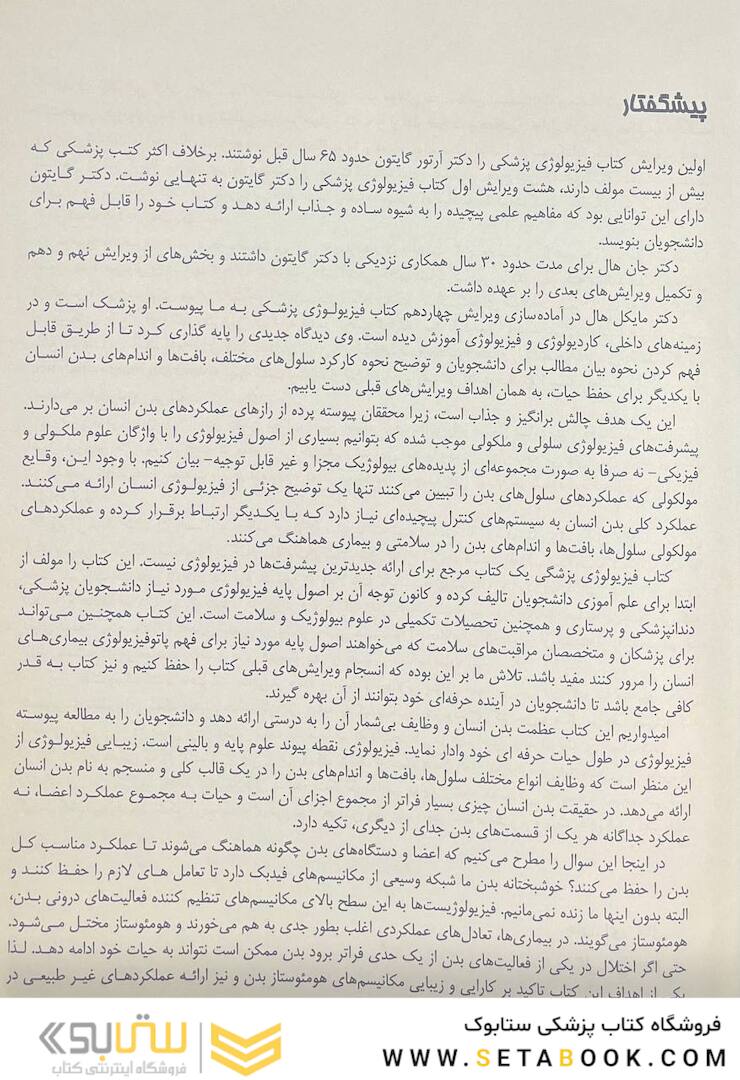 پیشگفتار
اولین ویرایش کتاب فیزیولوژی پزشکی را دکتر آرتور گایتون حدود ۶۵ سال قبل نوشتند. برخلاف اکثر کتب پزشکی که
بیش از بیست مولف دارند، هشت ویرایش اول کتاب فیزیولوژی پزشکی را دکتر گایتون به تنهایی نوشت. دکتر گایتون
دارای این توانایی بود که مفاهیم علمی پیچیده را به شیوه ساده و جذاب ارائه دهد و کتاب خود را قابل فهم برای
دانشجویان بنویسد.
دکتر جان هال برای مدت حدود ۳۰ سال همکاری نزدیکی با دکتر گایتون داشتند و بخش‌های از ویرایش نهم و دهم
و تکمیل ویرایش‌های بعدی را بر عهده داشت.
دکتر مایکل هال در آماده‌سازی ویرایش چهاردهم کتاب فیزیولوژی پزشکی به ما پیوست. او پزشک است و در
زمینه‌های داخلی، کاردیولوژی و فیزیولوژی آموزش دیده است. وی دیدگاه جدیدی را پایه گذاری کرد تا از طریق قابل
فهم کردن نحوه بیان مطالب برای دانشجویان و توضیح نحوه کارکرد سلول‌های مختلف، بافت‌ها و اندام‌های بدن انسان
با یکدیگر برای حفظ حیات، به همان اهداف ویرایش‌های قبلی دست یابیم.
این یک هدف چالش برانگیز و جذاب است، زیرا محققان پیوسته پرده از رازهای عملکردهای بدن انسان بر می‌دارند.
پیشرفت‌های فیزیولوژی سلولی و ملکولی موجب شده که بتوانیم بسیاری از اصول فیزیولوژی را با واژگان علوم ملکولی و
فیزیکی- نه صرفا به صورت مجموعه‌ای از پدیده‌های بیولوژیک مجزا و غیر قابل توجیه- بیان کنیم. با وجود این، وقایع
مولکولی که عملکردهای سلول‌های بدن را تبیین می‌کنند تنها یک توضیح جزئی از فیزیولوژی انسان ارائه می‌کنند.
عملکرد کلی بدن انسان به سیستم‌های کنترل پیچیده‌ای نیاز دارد که با یکدیگر ارتباط برقرار کرده و عملکردهای
مولکولی سلول‌ها، بافت‌ها و اندام‌های بدن را در سلامتی و بیماری هماهنگ می‌کنند.
کتاب فیزیولوژی پزشگی یک کتاب مرجع برای ارائه جدیدترین پیشرفت‌ها در فیزیولوژی نیست. این کتاب را مولف از
ابتدا برای علم آموزی دانشجویان تالیف کرده و کانون توجه آن بر اصول پایه فیزیولوژی مورد نیاز دانشجویان پزشکی،
دندانپزشکی و پرستاری و همچنین تحصیلات تکمیلی در علوم بیولوژیک و سلامت است. این کتاب همچنین می‌تواند
برای پزشکان و متخصصان مراقبت‌های سلامت که می‌خواهند اصول پایه مورد نیاز برای فهم پاتوفیزیولوژی بیماری‌های
انسان را مرور کنند مفید باشد. تلاش ما بر این بوده که انسجام ویرایش‌های قبلی کتاب را حفظ کنیم و نیز کتاب به قدر
کافی جامع باشد تا دانشجویان در آینده حرفه‌ای خود بتوانند از آن بهره گیرند.
امیدواریم این کتاب عظمت بدن انسان و وظایف بی‌شمار آن را به درستی ارائه دهد و دانشجویان را به مطالعه پیوسته
فیزیولوژی در طول حیات حرفه ای خود وادار نماید. فیزیولوژی نقطه پیوند علوم پایه و بالینی است. زیبایی فیزیولوژی از
این منظر است که وظایف انواع مختلف سلول‌ها، بافت‌ها و اندام‌های بدن را در یک قالب کلی و منسجم به نام بدن انسان
ارائه می‌دهد. در حقیقت بدن انسان چیزی بسیار فراتر از مجموع اجزای آن است و حیات به مجموع عملکرد اعضا، نه
عملکرد جداگانه هر یک از قسمت‌های بدن جدای از دیگری، تکیه دارد.
در اینجا این سوال را مطرح می‌کنیم که اعضا و دستگاه‌های بدن چگونه هماهنگ می‌شوند تا عملکرد مناسب کل
بدن را حفظ می‌کنند؟ خوشبختانه بدن ما شبکه وسیعی از مکانیسم‌های فیدبک دارد تا تعامل های لازم را حفظ کنند و
البته بدون اینها ما زنده نمی‌مانیم. فیزیولوژیست‌ها به این سطح بالای مکانیسم‌های تنظیم کننده فعالیت‌های درونی بدن،
هومئوستاز می‌گویند. در بیماری‌ها، تعادل‌های عملکردی اغلب بطور جدی به هم می‌خورند و هومئوستاز مختل می‌شود.
حتی اگر اختلال در یکی از فعالیت‌های بدن از یک حدی فراتر برود بدن ممکن است نتواند به حیات خود ادامه دهد. لذا
یکی از اهداف این کتاب تاکید بر کارایی و زیبایی مکانیسم‌های هومئوستاز بدن و نیز ارائه عملکردهای غیر طبیعی در
فروشگاه کتاب پزشکی ستابوک
WWW.SETABOOK.COM
ستابوک
فروشگاه اینترنتی کتاب